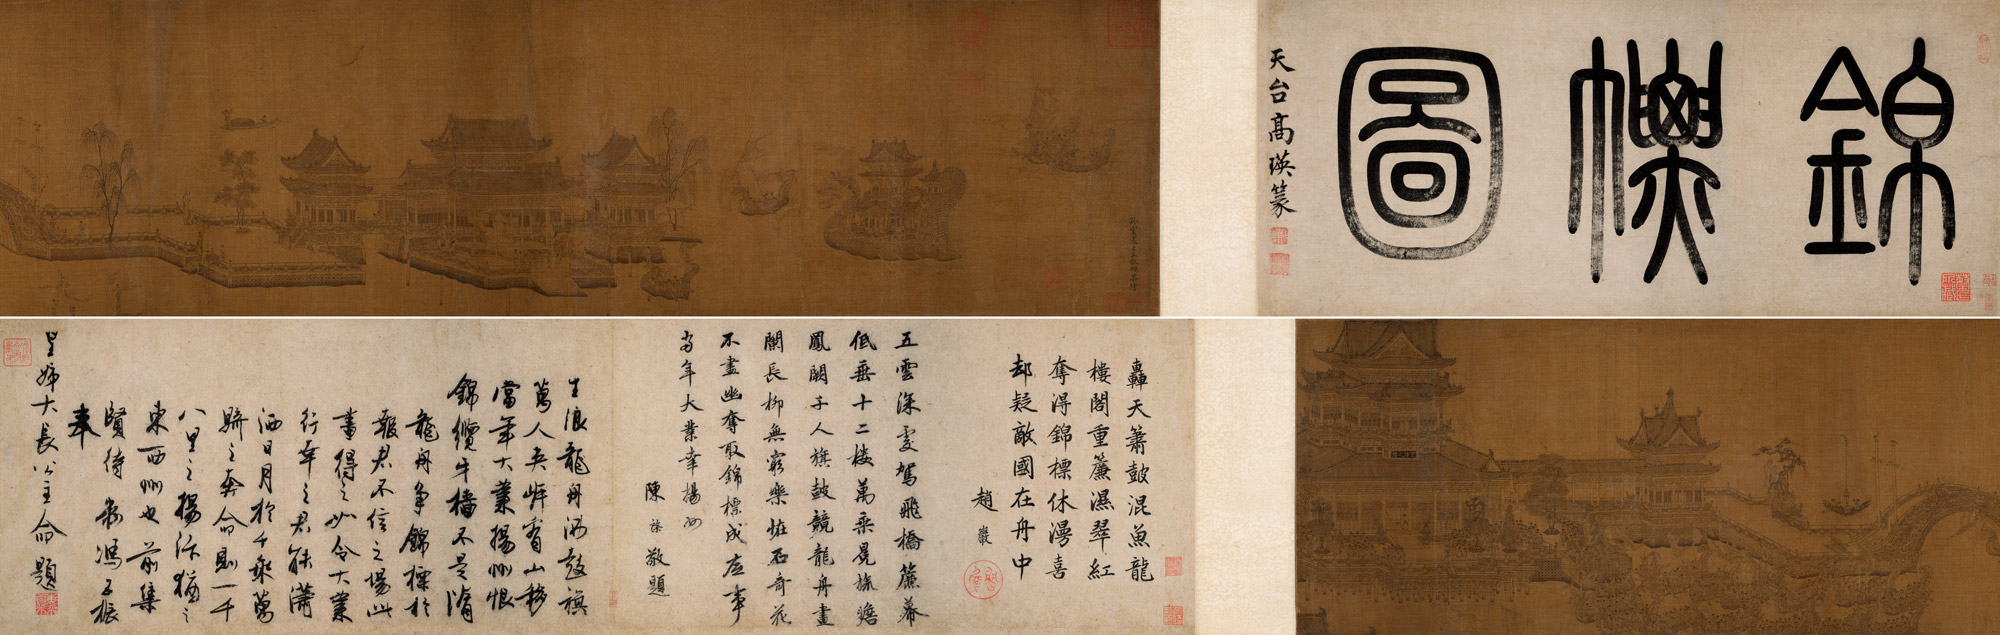 錦幖圖
天台高瑛篆
轟天簫鼓混魚龍
樓閣重簾濕翠紅
奪得錦標休漫喜
却疑敵國在舟中
趙巖
五雲深處駕飛橋簾幕
低垂十二樓萬乘晃旒瞻
鳳闕千人旗鼓競龍舟畫
闌長柳無窮樂怪石奇花
不盡幽奪取錦標成底事
當年大業幸揚州
陳敬題
生浪龍舟鼓旗
萬人夾岸看山移
當年大業揚州恨
錦纜牙檣不是隋
龍舟爭錦標於
報君不信之場此
書得之如令大業
行幸之君能瀟
洒日月於千乘萬
騎之奔命則一千
八里之揚汴猶之
東西州也前集
賢待制馮子振
奉
皇姊大長公主命題